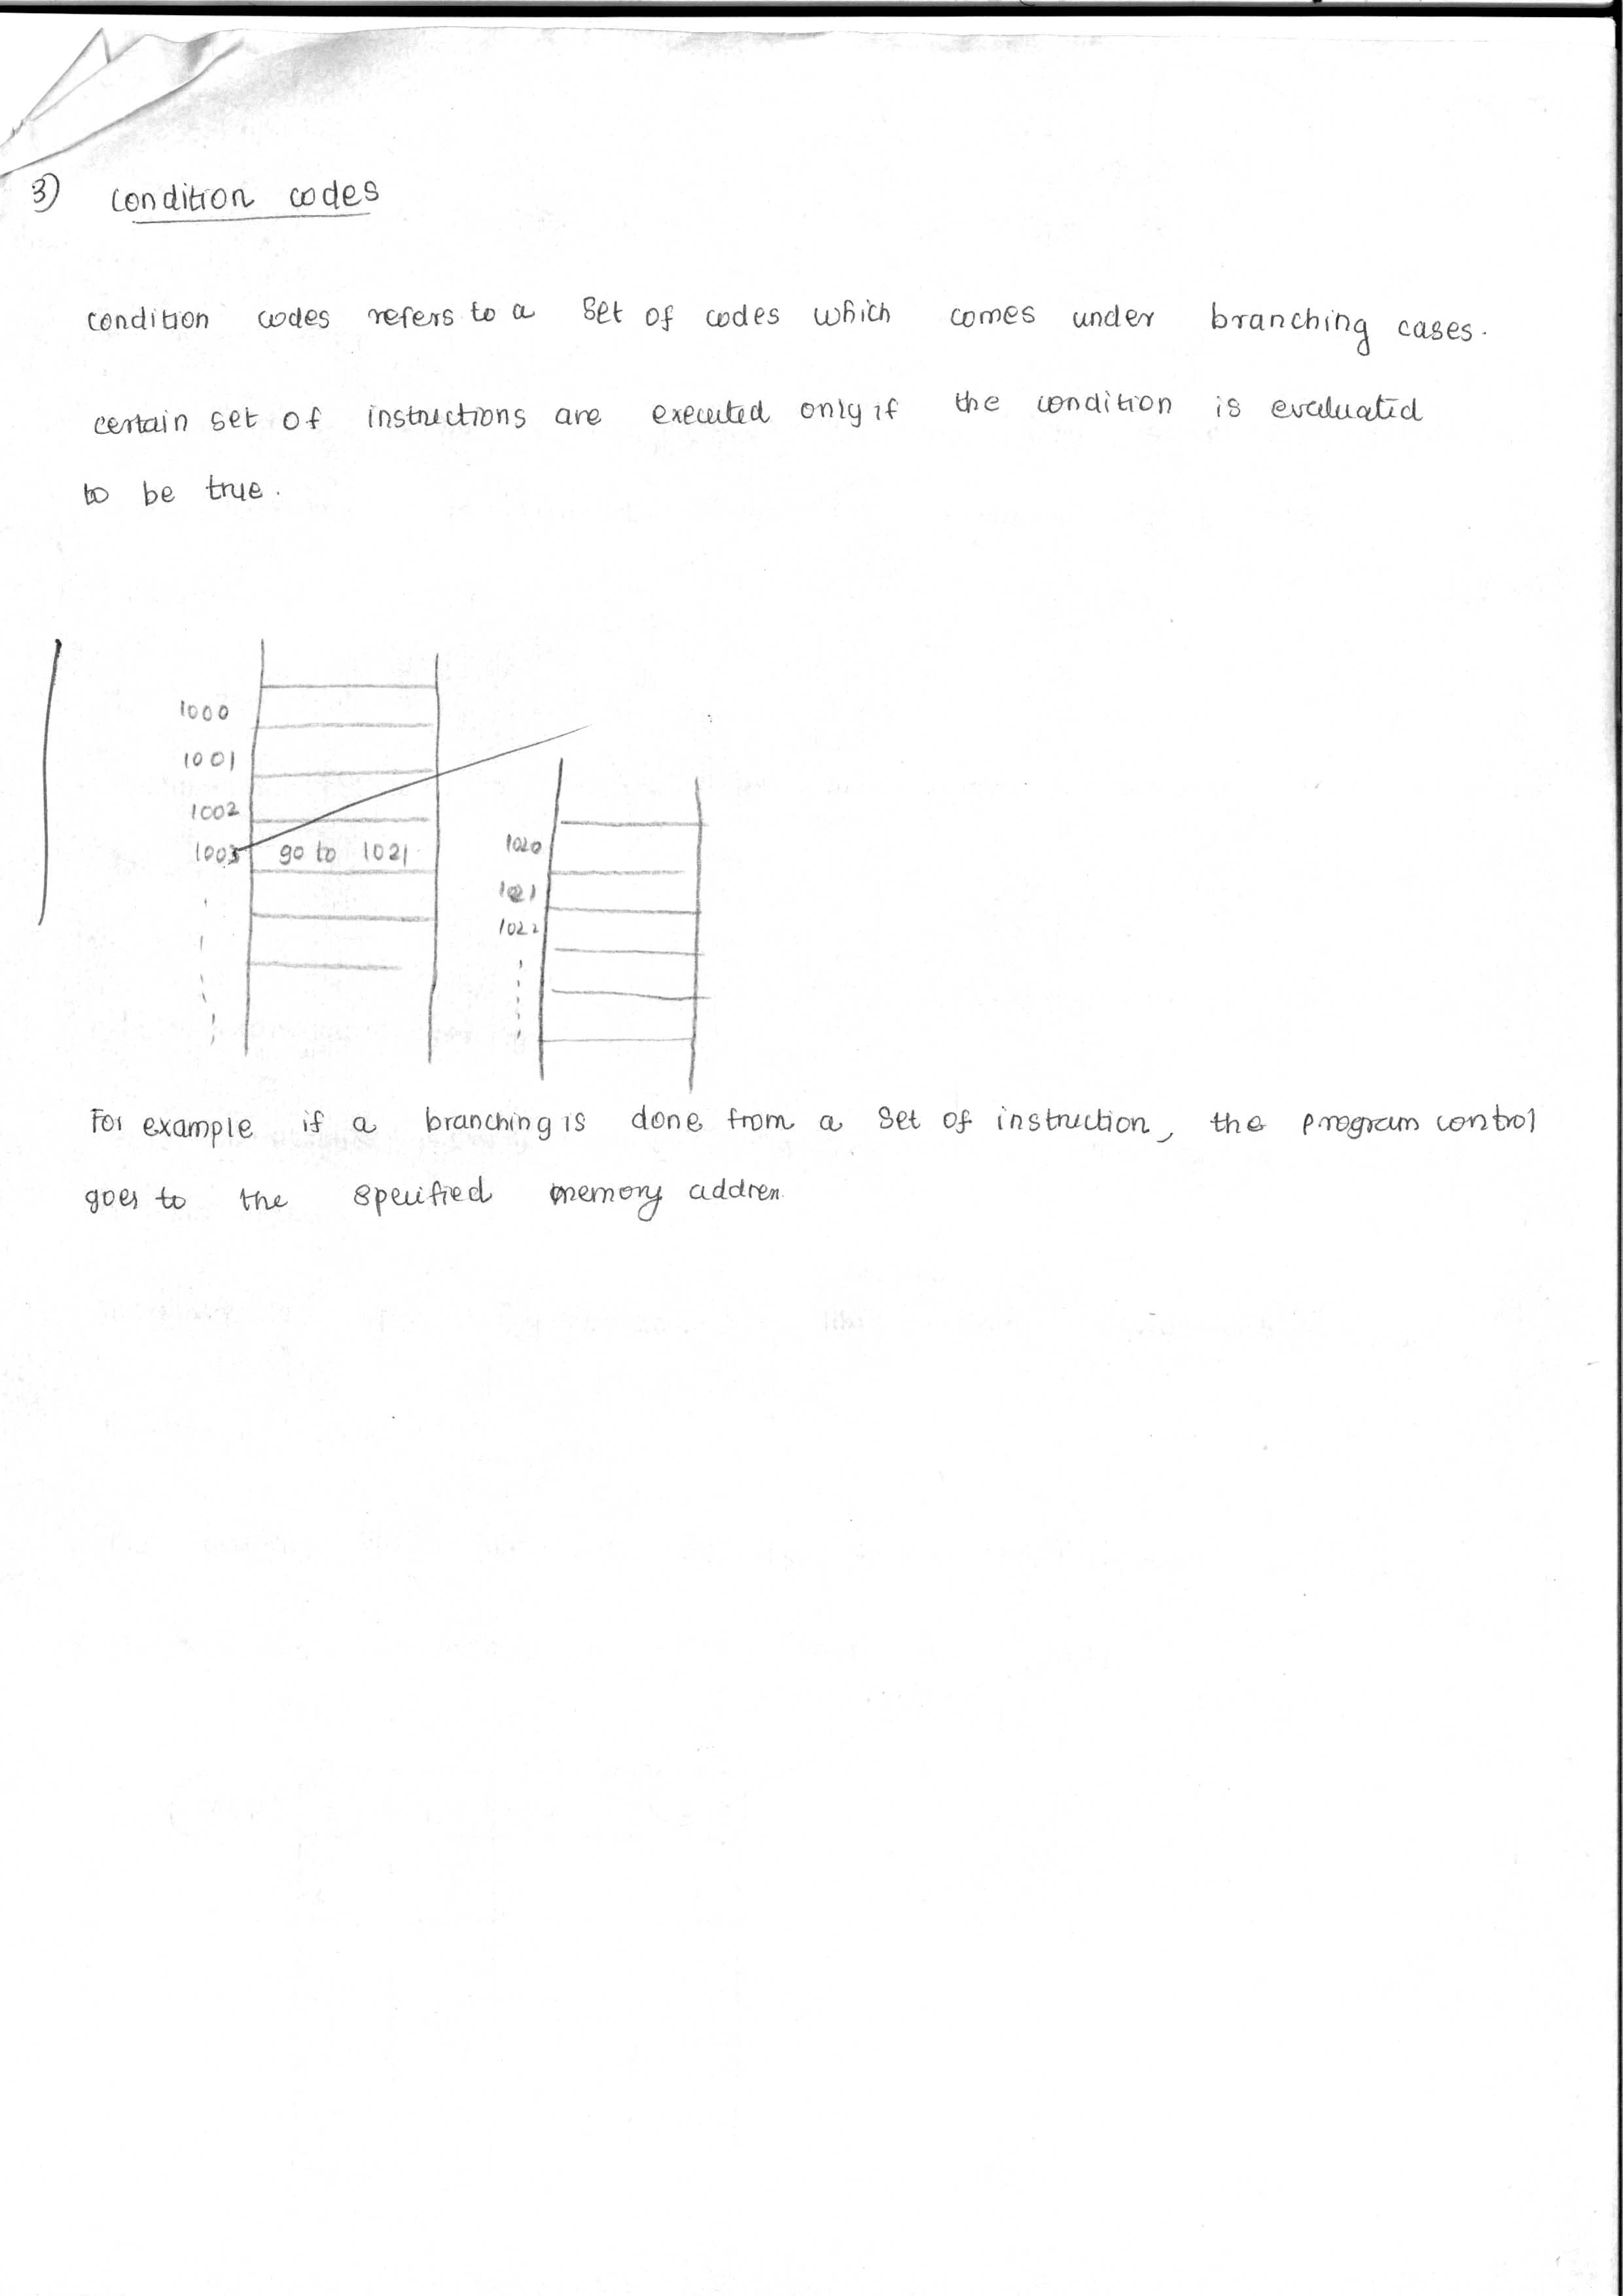 3) Condition codes
condition codes refers to a set of codes which comes under branching cases.
certain set of instructions are executed only if the condition is evaluated
to be true.
1000
1001
1002
1003 go to 1021
1020
1021
1022
For example if a branching is done from a set of instruction, the program control
goes to the specified memory address